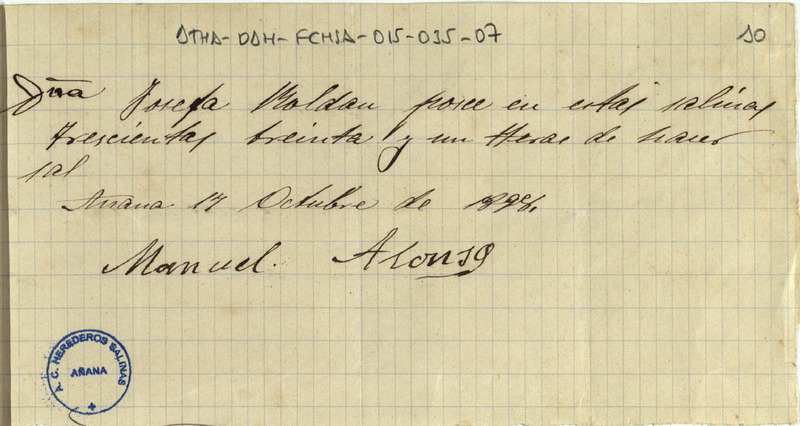 ATHA-DAH-FCHSA-015-035-07
10
Dña Josefa Roldan posee en estas salinas
trescientas treinta y un Heras de hacer
sal
Añana 17 Octubre de
Manuel. Alonso
A. C. HEREDEROS SALINAS
AÑANA